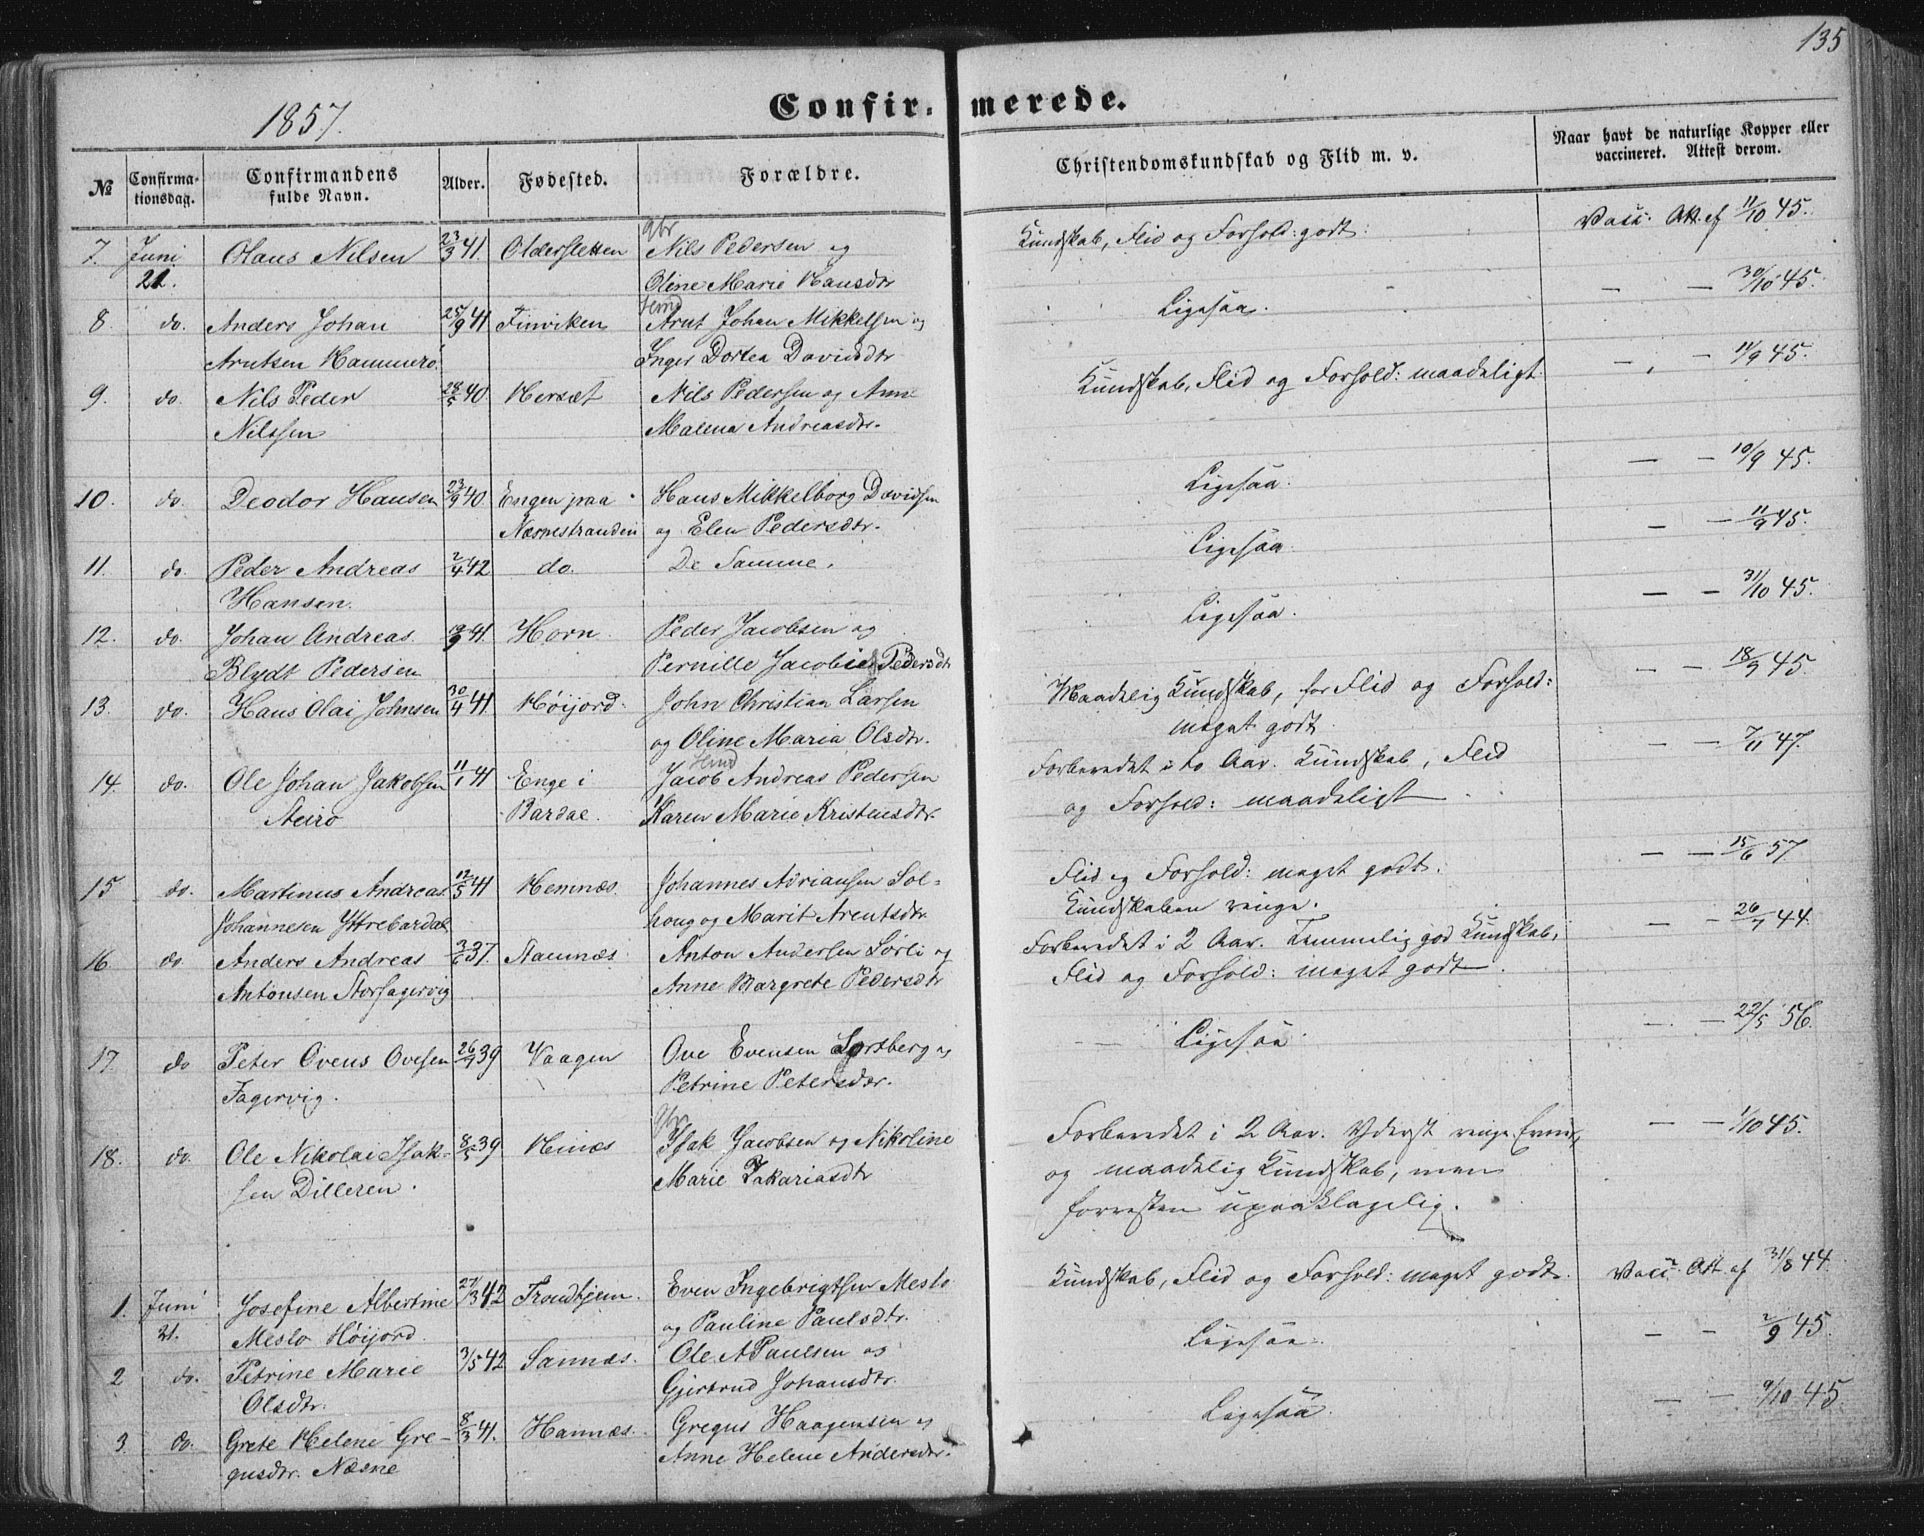 135
1857.
Confir- merede.
No
Confirma-
tionsdag.
Confirmandens
fulde Navn.
Alder.
Fødested.
Forældre.
Christendomskundskab og Flid m. v.
Naar havt de naturlige Kopper eller
vaccineret. Attest derom.
7. Juni Olaus Nilsen 23/3 41. Oldersletten Nils Pedersen og Kundskab, Flid og Forhold: godt. Vacc. Att. af 11/10 45.
21. Oline Marie Hansdtr
8 do. Anders Johan 25/9 41 Finviken Arnt Johan Mikkelsen og Ligesaa. — — 30/10 45.
Arntsen Hammerö. Inger Dortea Davidsdtr
9. do. Nils Peder 28/5 40 Hersæt Nils Pedersen og Anne Kundskab, Flid og Forhold: maadeligt. — — 11/9 45.
Nilssen Malena Andreasdtr.
10. do. Deodor Hansen 23/9 40. Engen paa Hans Mikkelborg Davidsen Ligesaa. — — 10/9 45.
Næsnestranden og Elen Pedersdtr.
11. do. Peder Andreas 2/4 42 do. De Samme. Ligesaa. — — 11/9 45.
Hansen.
12. do. Johan Andreas 19/9 41. Horn. Peder Jacobsen og Ligesaa. — — 31/10 45.
Blydt Pedersen Pernille Pedersdtr
13. do. Hans Olai Johnsen 30/4 41 Höijord. John Christian Larsen Maadelig Kundskab, for Flid og Forhold: — — 18/9 45.
og Oline Maria Olsdtr. meget godt.
14. do. Ole Johan Jakobsen 11/1 41 Enge i Jacob Andreas Pedersen Forberedet i to Aar. Kundskab, Flid — — 7/11 47.
Steirö Bardal. Karen Marie Kristensdtr. og Forhold: maadeligt
15 do. Martinus Andreas 12/5 41 Hemnæs. Johannes Adriansen Sol- Flid og Forhold: meget godt. — — 15/6 57
Johannesen Yttrebardal houg og Marit Arentsdtr. Kundskaben ringe.
16 do Anders Andreas 3/6 37. Stamnæs Anton Andersen Sörli og Forberedet i 2 Aar. Temmelig god Kundskab, — — 26/7 44.
Antonsen Storfagervig Anne Margrete Pedersdtr Flid og Forhold: meget godt.
17. do Peter Ovens Ovesen 26/7 39 Vaagen Ove Evensen og Ligesaa. — — 22/5 56.
Fagervig. Petrine Petersdtr.
18. do. Ole Nikolai Isak- 8/5 39 Hemnæs Isak Jacobsen og Nikoline Forberedet i 2 Aar. Yderst ringe Evner, — — 1/10 45.
sen Dilleren. Marie Zakariasdtr og maadelig Kundskab; men
forresten upaaklagelig.
1. Juni Josefine Albertine 27/3 42 Trondhjem. Even Ingebrigtsen Meslo Kundskab, Flid og Forhold: meget godt. Vacc. Att. af 31/8 44.
21. Meslo Höijord. og Pauline Paulsdtr.
2 do. Petrine Marie 3/5 42 Sannæs. Ole A Paulsen og Ligesaa. — — 2/9 45.
Olsdtr. Gjertrud Johansdtr.
3. do. Grete Helene Gre- 8/3 41. Hannæs. Gregus Haagensen og Ligesaa. — — 9/10 45.
gusdtr. Næsne Anne Helene Andersdtr.